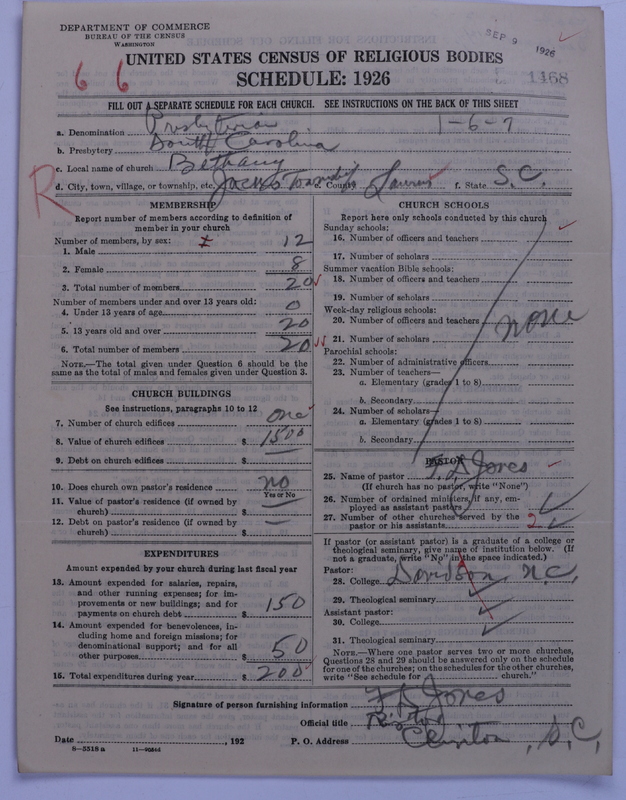 DEPARTMENT OF COMMERCE
BUREAU OF THE CENSUS
WASHINGTON
SEP 9 1926
UNITED STATES CENSUS OF RELIGIOUS BODIES
SCHEDULE: 1926
6 6
1468
FILL OUT A SEPARATE SCHEDULE FOR EACH CHURCH. SEE INSTRUCTIONS ON THE BACK OF THIS SHEET
a. Denomination Presbyterian 1-6-7
b. Presbytery South Carolina
c. Local name of church Bethany
R
d. City, town, village, or township, etc. Jacks Township e. County Laurens f. State S.C.
MEMBERSHIP
Report number of members according to definition of
member in your church
Number of members, by sex:
1. Male 12
2. Female 8
3. Total number of members 20
Number of members under and over 13 years old:
4. Under 13 years of age 0
5. 13 years old and over 20
6. Total number of members 20
NOTE.—The total given under Question 6 should be
same as the total of males and females given under Question 3.
CHURCH BUILDINGS
See instructions, paragraphs 10 to 12
7. Number of church edifices one
8. Value of church edifices $ 1500
9. Debt on church edifices $
10. Does church own pastor's residence no
Yes or No
11. Value of pastor's residence (if owned by
church) $ —
12. Debt on pastor's residence (if owned by
church) $ —
EXPENDITURES
Amount expended by your church during last fiscal year
13. Amount expended for salaries, repairs,
and other running expenses; for im-
provements or new buildings; and for
payments on church debt $ 150
14. Amount expended for benevolences, in-
cluding home and foreign missions; for
denominational support; and for all
other purposes $ 50
15. Total expenditures during year $ 200
CHURCH SCHOOLS
Report here only schools conducted by this church
Sunday schools:
16. Number of officers and teachers
17. Number of scholars
Summer vacation Bible schools:
18. Number of officers and teachers
19. Number of scholars
Week-day religious schools:
20. Number of officers and teachers none
21. Number of scholars
Parochial schools:
22. Number of administrative officers
23. Number of teachers—
a. Elementary (grades 1 to 8)
b. Secondary
24. Number of scholars—
a. Elementary (grades 1 to 8)
b. Secondary
PASTOR
25. Name of pastor F. D. Jones
(If church has no pastor, write "None")
26. Number of ordained ministers, if any, em-
ployed as assistant pastors
27. Number of other churches served by the
pastor or his assistants 2
If pastor (or assistant pastor) is a graduate of a college or
theological seminary, give name of institution below. (If
not a graduate, write "No" in the space indicated.)
Pastor:
28. College Davidson, N.C.
29. Theological seminary
Assistant pastor:
30. College
31. Theological seminary
NOTE.—Where one pastor serves two or more churches,
Questions 28 and 29 should be answered only on the schedule
for one of the churches; on the schedules for the other churches,
write "See schedule for church."
Signature of person furnishing information F D Jones
Official title Pastor
Date , 192 P. O. Address Clinton, S.C.
8-5518 a 11-9086d